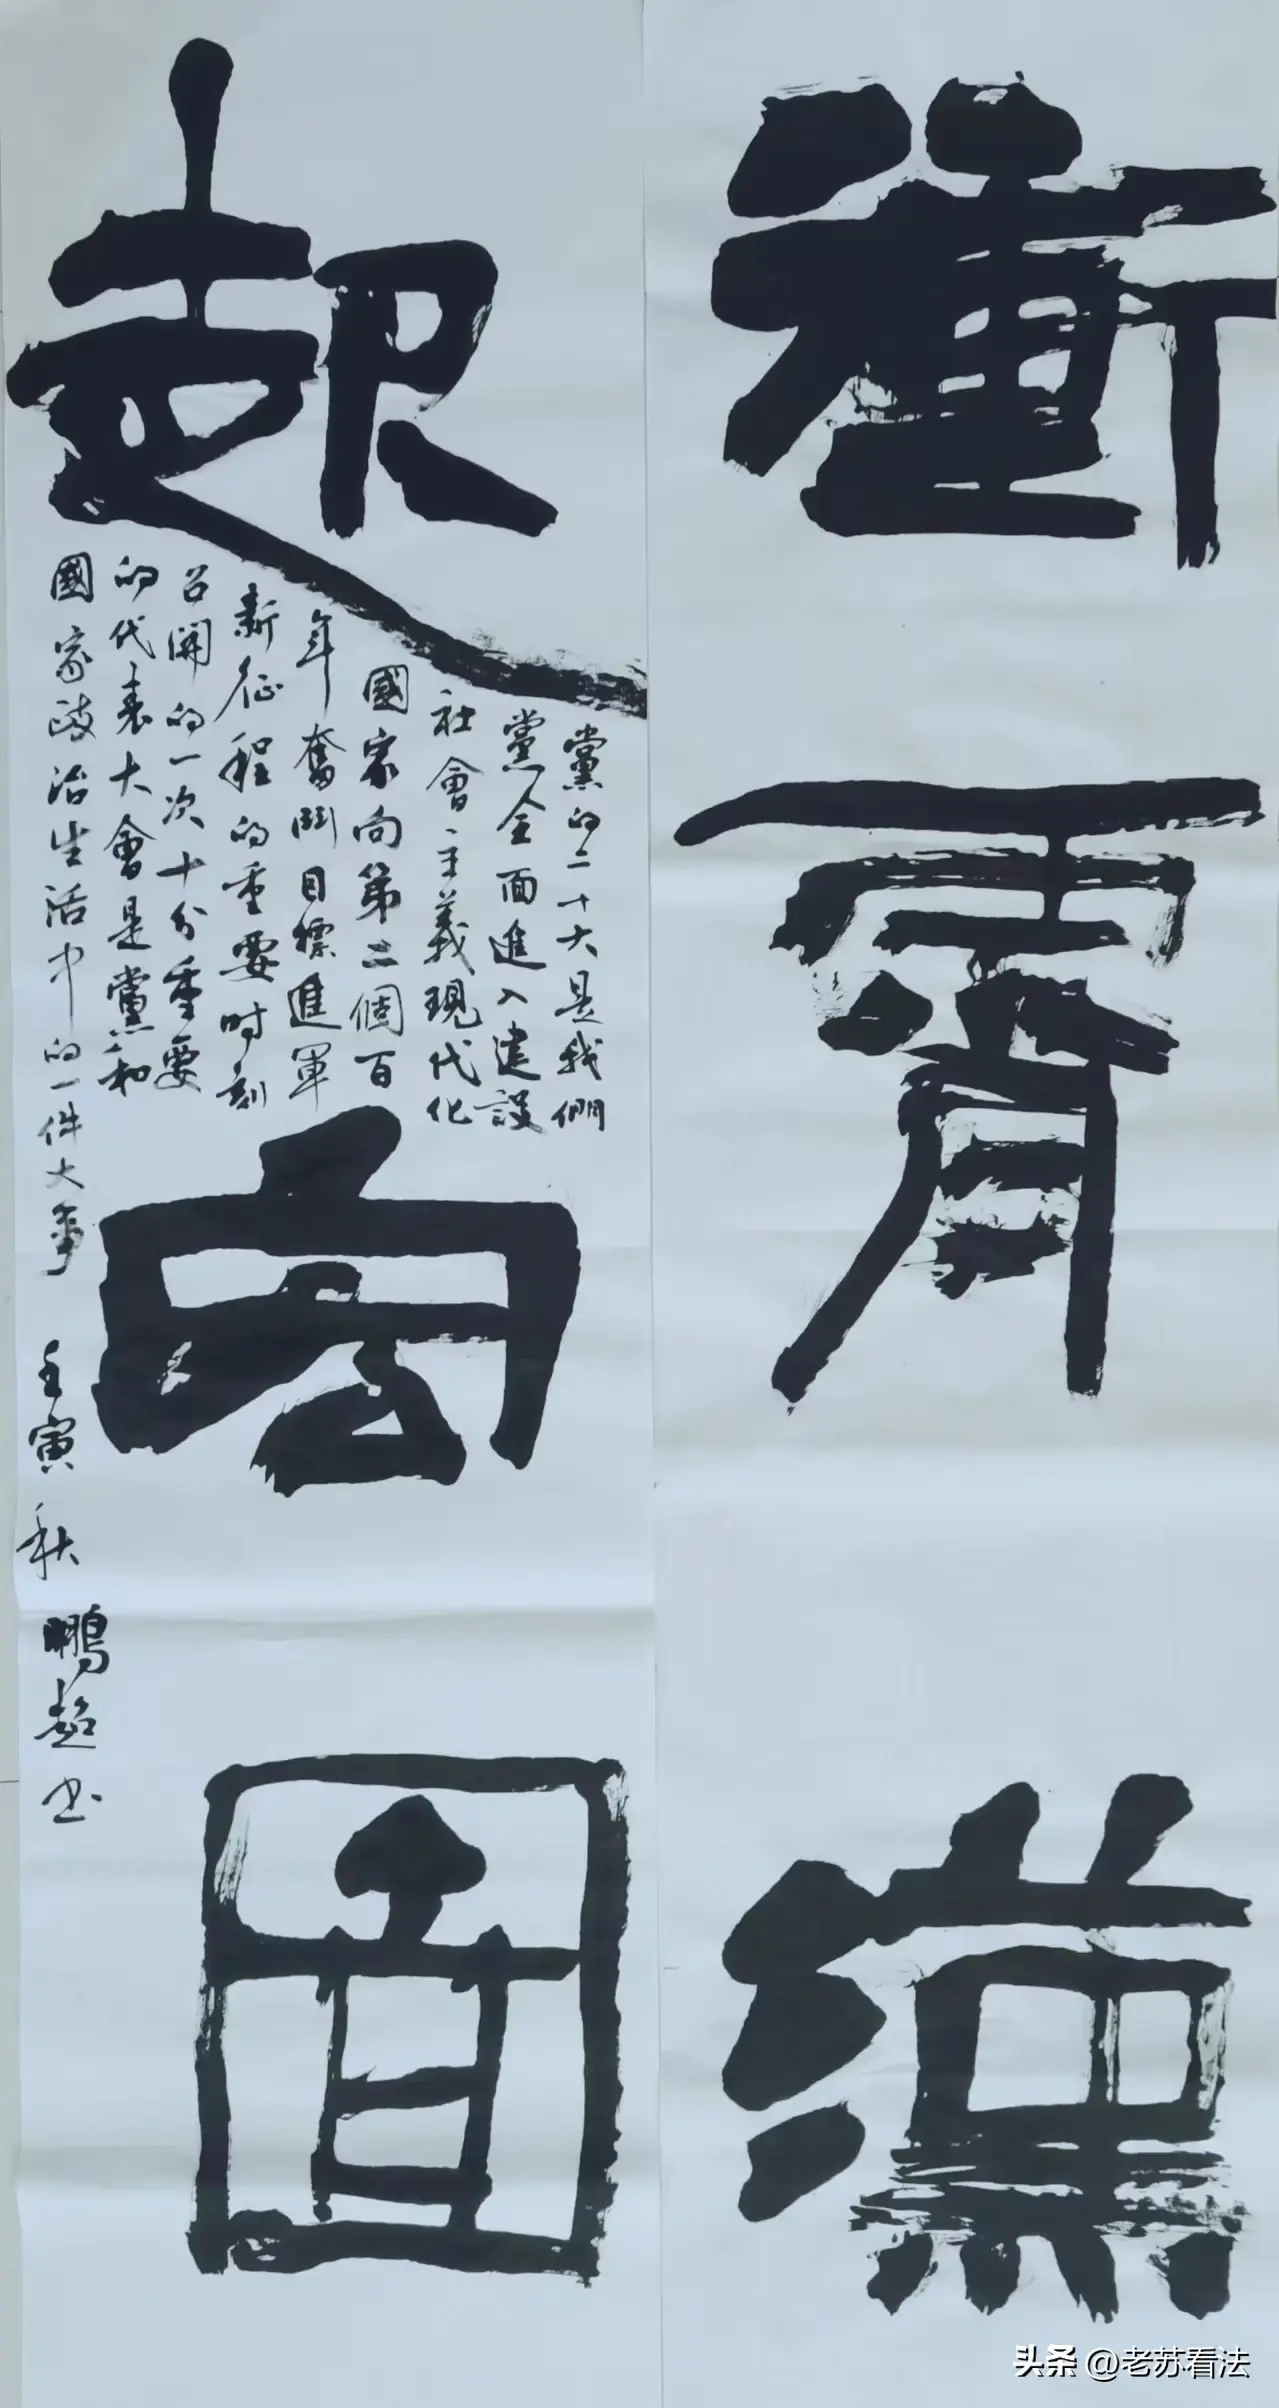 衝霄漢
起宏圖
黨的二十大是我們
黨全面進入建設
社會主義現代化
國家向第二個百
年奮鬥目標進軍
新征程的重要时刻
召開的一次十分重要
的代表大會是黨和
國家政治生活中的一件大事 壬寅秋 鵬超书
头条 @老苏看法